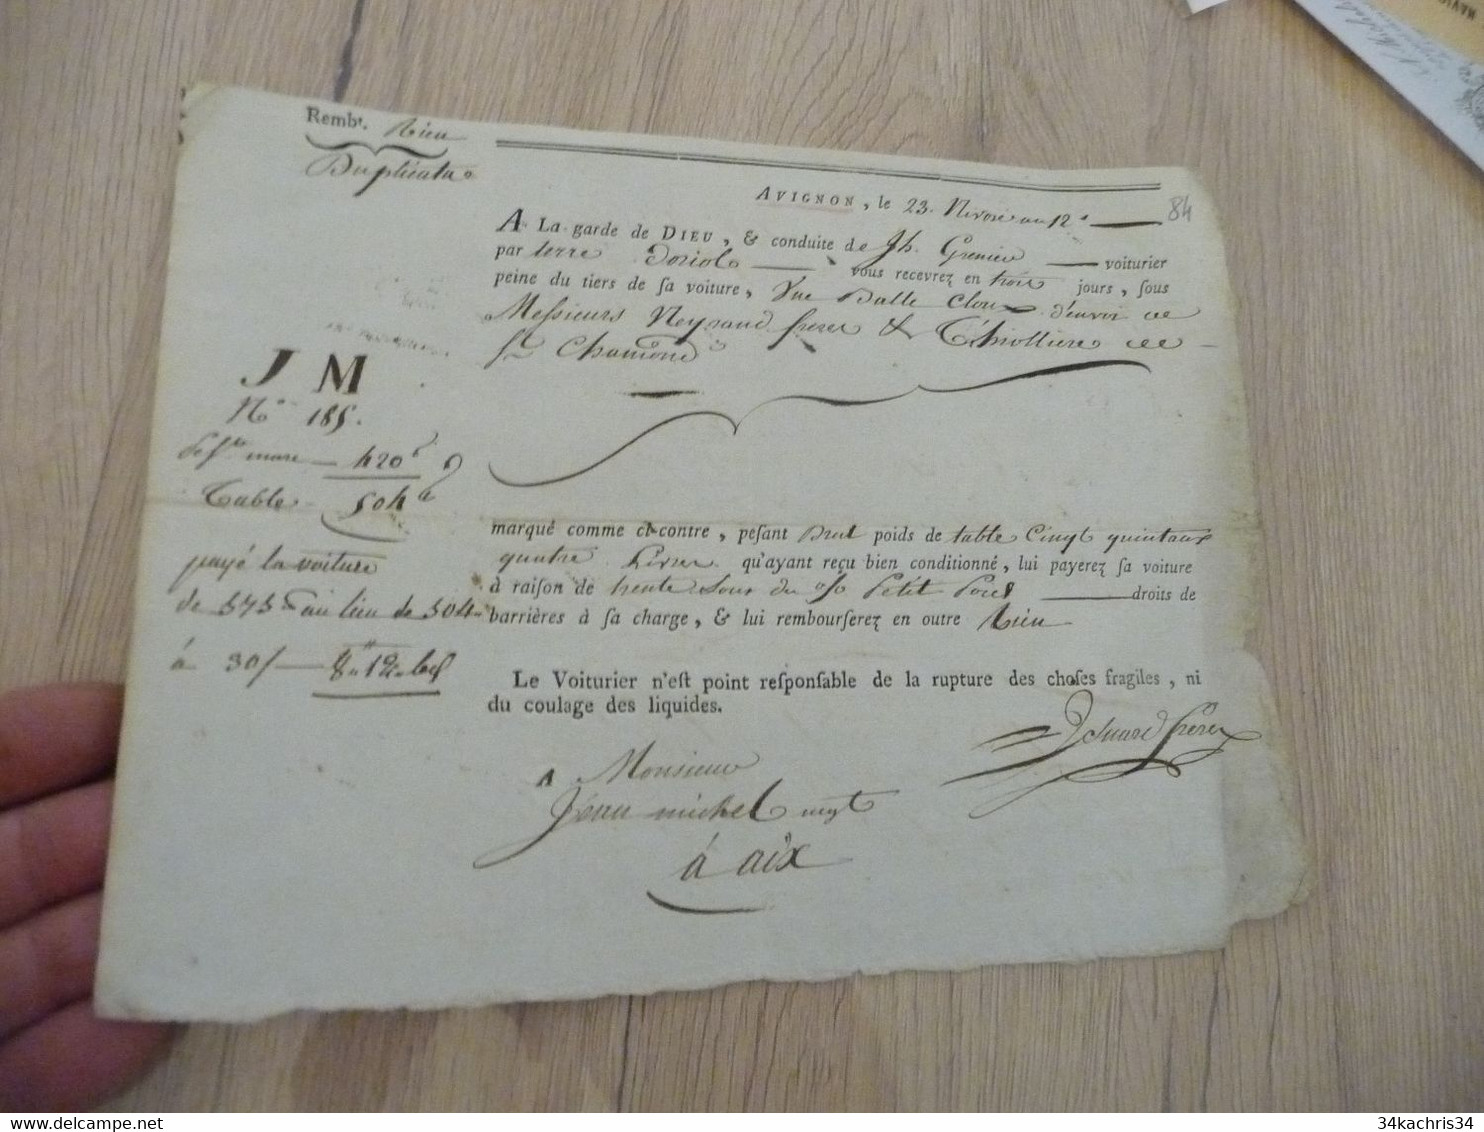 Remb.t Rien
Duplicata
AVIGNON, le 23. Nivose an 12.e
84
A La garde de DIEU, & conduite de Jh. Grenier voiturier
par terre Doriol vous recevrez en trois jours, sous
peine du tiers de sa voiture, Une Balle Cloux d'envoi de
Messieurs Neyrand freres & Thiolliere de
St. Chamond
J M
N.o 185.
420
Table 504
payé la voiture
de 575 au lieu de 504
à 30/
marqué comme ci-contre, pesant Brut poids de table Cinq quintaux
quatre Livres qu'ayant reçu bien conditionné, lui payerez sa voiture
à raison de trente sous du % Petit Poids droits de
barrières à sa charge, & lui rembourserez en outre Rien
Le Voiturier n'est point responsable de la rupture des choses fragiles, ni
du coulage des liquides.
freres
A Monsieur
Jean michel negt
à aix
34kachris34